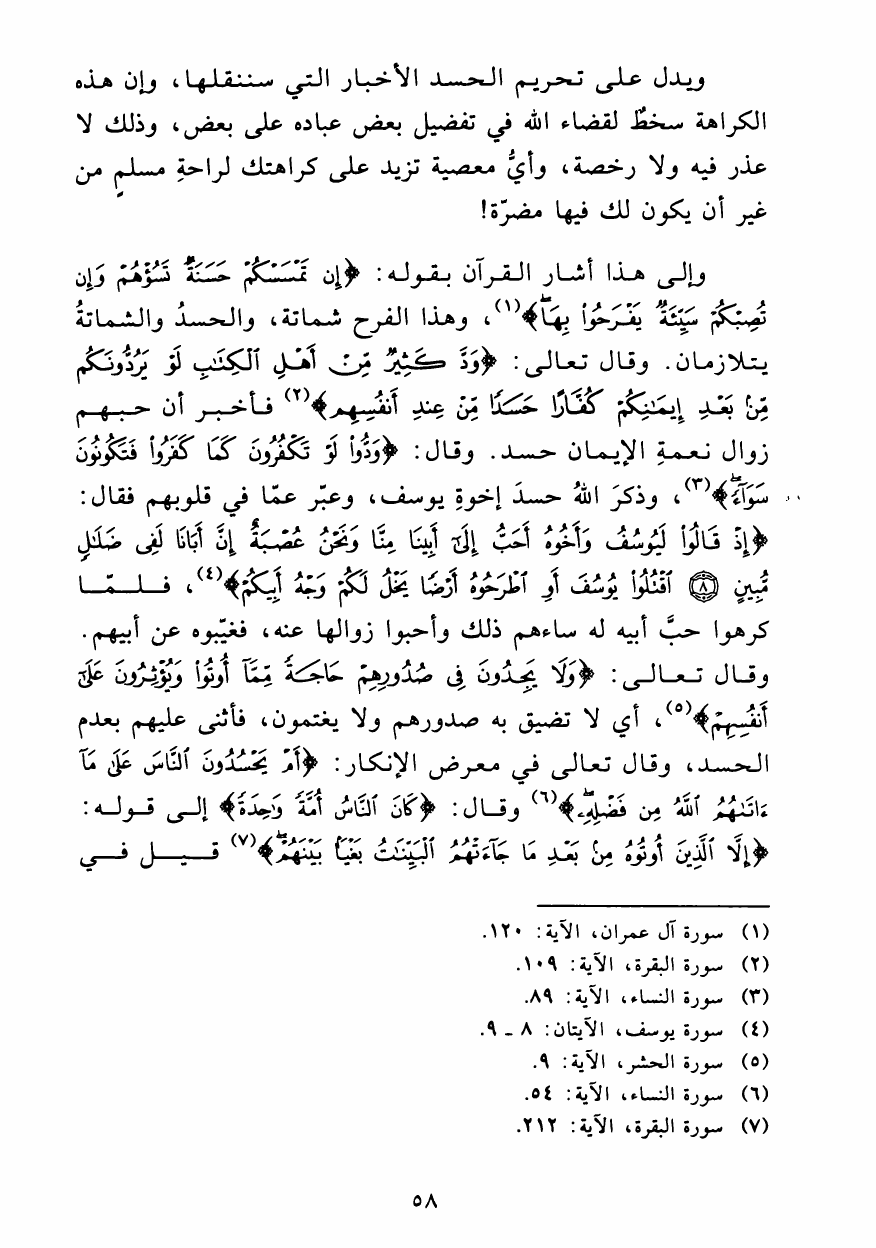 ويدل على تحريم الحسد الأخبار التي سننقلها، وإن هذه
الكراهة سخطٌ لقضاء الله في تفضيل بعض عباده على بعض، وذلك لا
عذر فيه ولا رخصة، وأيُّ معصية تزيد على كراهتك لراحةِ مسلمٍ من
غير أن يكون لك فيها مضرّة!
وإلى هذا أشار القرآن بقوله: ﴿إِن تَمْسَسْكُمْ حَسَنَةٌ تَسُؤْهُمْ وَإِن
تُصِبْكُمْ سَيِّئَةٌ يَفْرَحُوا۟ بِهَاۖ﴾(١)، وهذا الفرح شماتة، والحسدُ والشماتةُ
يتلازمان. وقال تعالى: ﴿وَدَّ كَثِيرٌ مِّنْ أَهْلِ ٱلْكِتَٰبِ لَوْ يَرُدُّونَكُم
مِّنۢ بَعْدِ إِيمَٰنِكُمْ كُفَّارًا حَسَدًا مِّنْ عِندِ أَنفُسِهِم﴾(٢) فأخبر أن حبهم
زوال نعمةِ الإيمان حسد. وقال: ﴿وَدُّوا۟ لَوْ تَكْفُرُونَ كَمَا كَفَرُوا۟ فَتَكُونُونَ
سَوَآءًۖ﴾(٣)، وذكرَ اللهُ حسدَ إخوةِ يوسف، وعبّر عمّا في قلوبهم فقال:
﴿إِذْ قَالُوا۟ لَيُوسُفُ وَأَخُوهُ أَحَبُّ إِلَىٰٓ أَبِينَا مِنَّا وَنَحْنُ عُصْبَةٌ إِنَّ أَبَانَا لَفِى ضَلَٰلٍ
مُّبِينٍ ۝٨ ٱقْتُلُوا۟ يُوسُفَ أَوِ ٱطْرَحُوهُ أَرْضًا يَخْلُ لَكُمْ وَجْهُ أَبِيكُمْ﴾(٤)، فلمّا
كرهوا حبَّ أبيه له ساءهم ذلك وأحبوا زوالها عنه، فغيّبوه عن أبيهم.
وقال تعالى: ﴿وَلَا يَجِدُونَ فِى صُدُورِهِمْ حَاجَةً مِّمَّآ أُوتُوا۟ وَيُؤْثِرُونَ عَلَىٰٓ
أَنفُسِهِمْ﴾(٥)، أي لا تضيق به صدورهم ولا يغتمون، فأثنى عليهم بعدم
الحسد، وقال تعالى في معرض الإنكار: ﴿أَمْ يَحْسُدُونَ ٱلنَّاسَ عَلَىٰ مَآ
ءَاتَىٰهُمُ ٱللَّهُ مِن فَضْلِهِۦۖ﴾(٦) وقال: ﴿كَانَ ٱلنَّاسُ أُمَّةً وَٰحِدَةً﴾ إلى قوله:
﴿إِلَّا ٱلَّذِينَ أُوتُوهُ مِنۢ بَعْدِ مَا جَآءَتْهُمُ ٱلْبَيِّنَٰتُ بَغْيًۢا بَيْنَهُمْۖ﴾(٧) قيل في
(١) سورة آل عمران، الآية: ١٢٠.
(٢) سورة البقرة، الآية: ١٠٩.
(٣) سورة النساء، الآية: ٨٩.
(٤) سورة يوسف، الآيتان: ٨ ـ ٩.
(٥) سورة الحشر، الآية: ٩.
(٦) سورة النساء، الآية: ٥٤.
(٧) سورة البقرة، الآية: ٢١٢.
٥٨